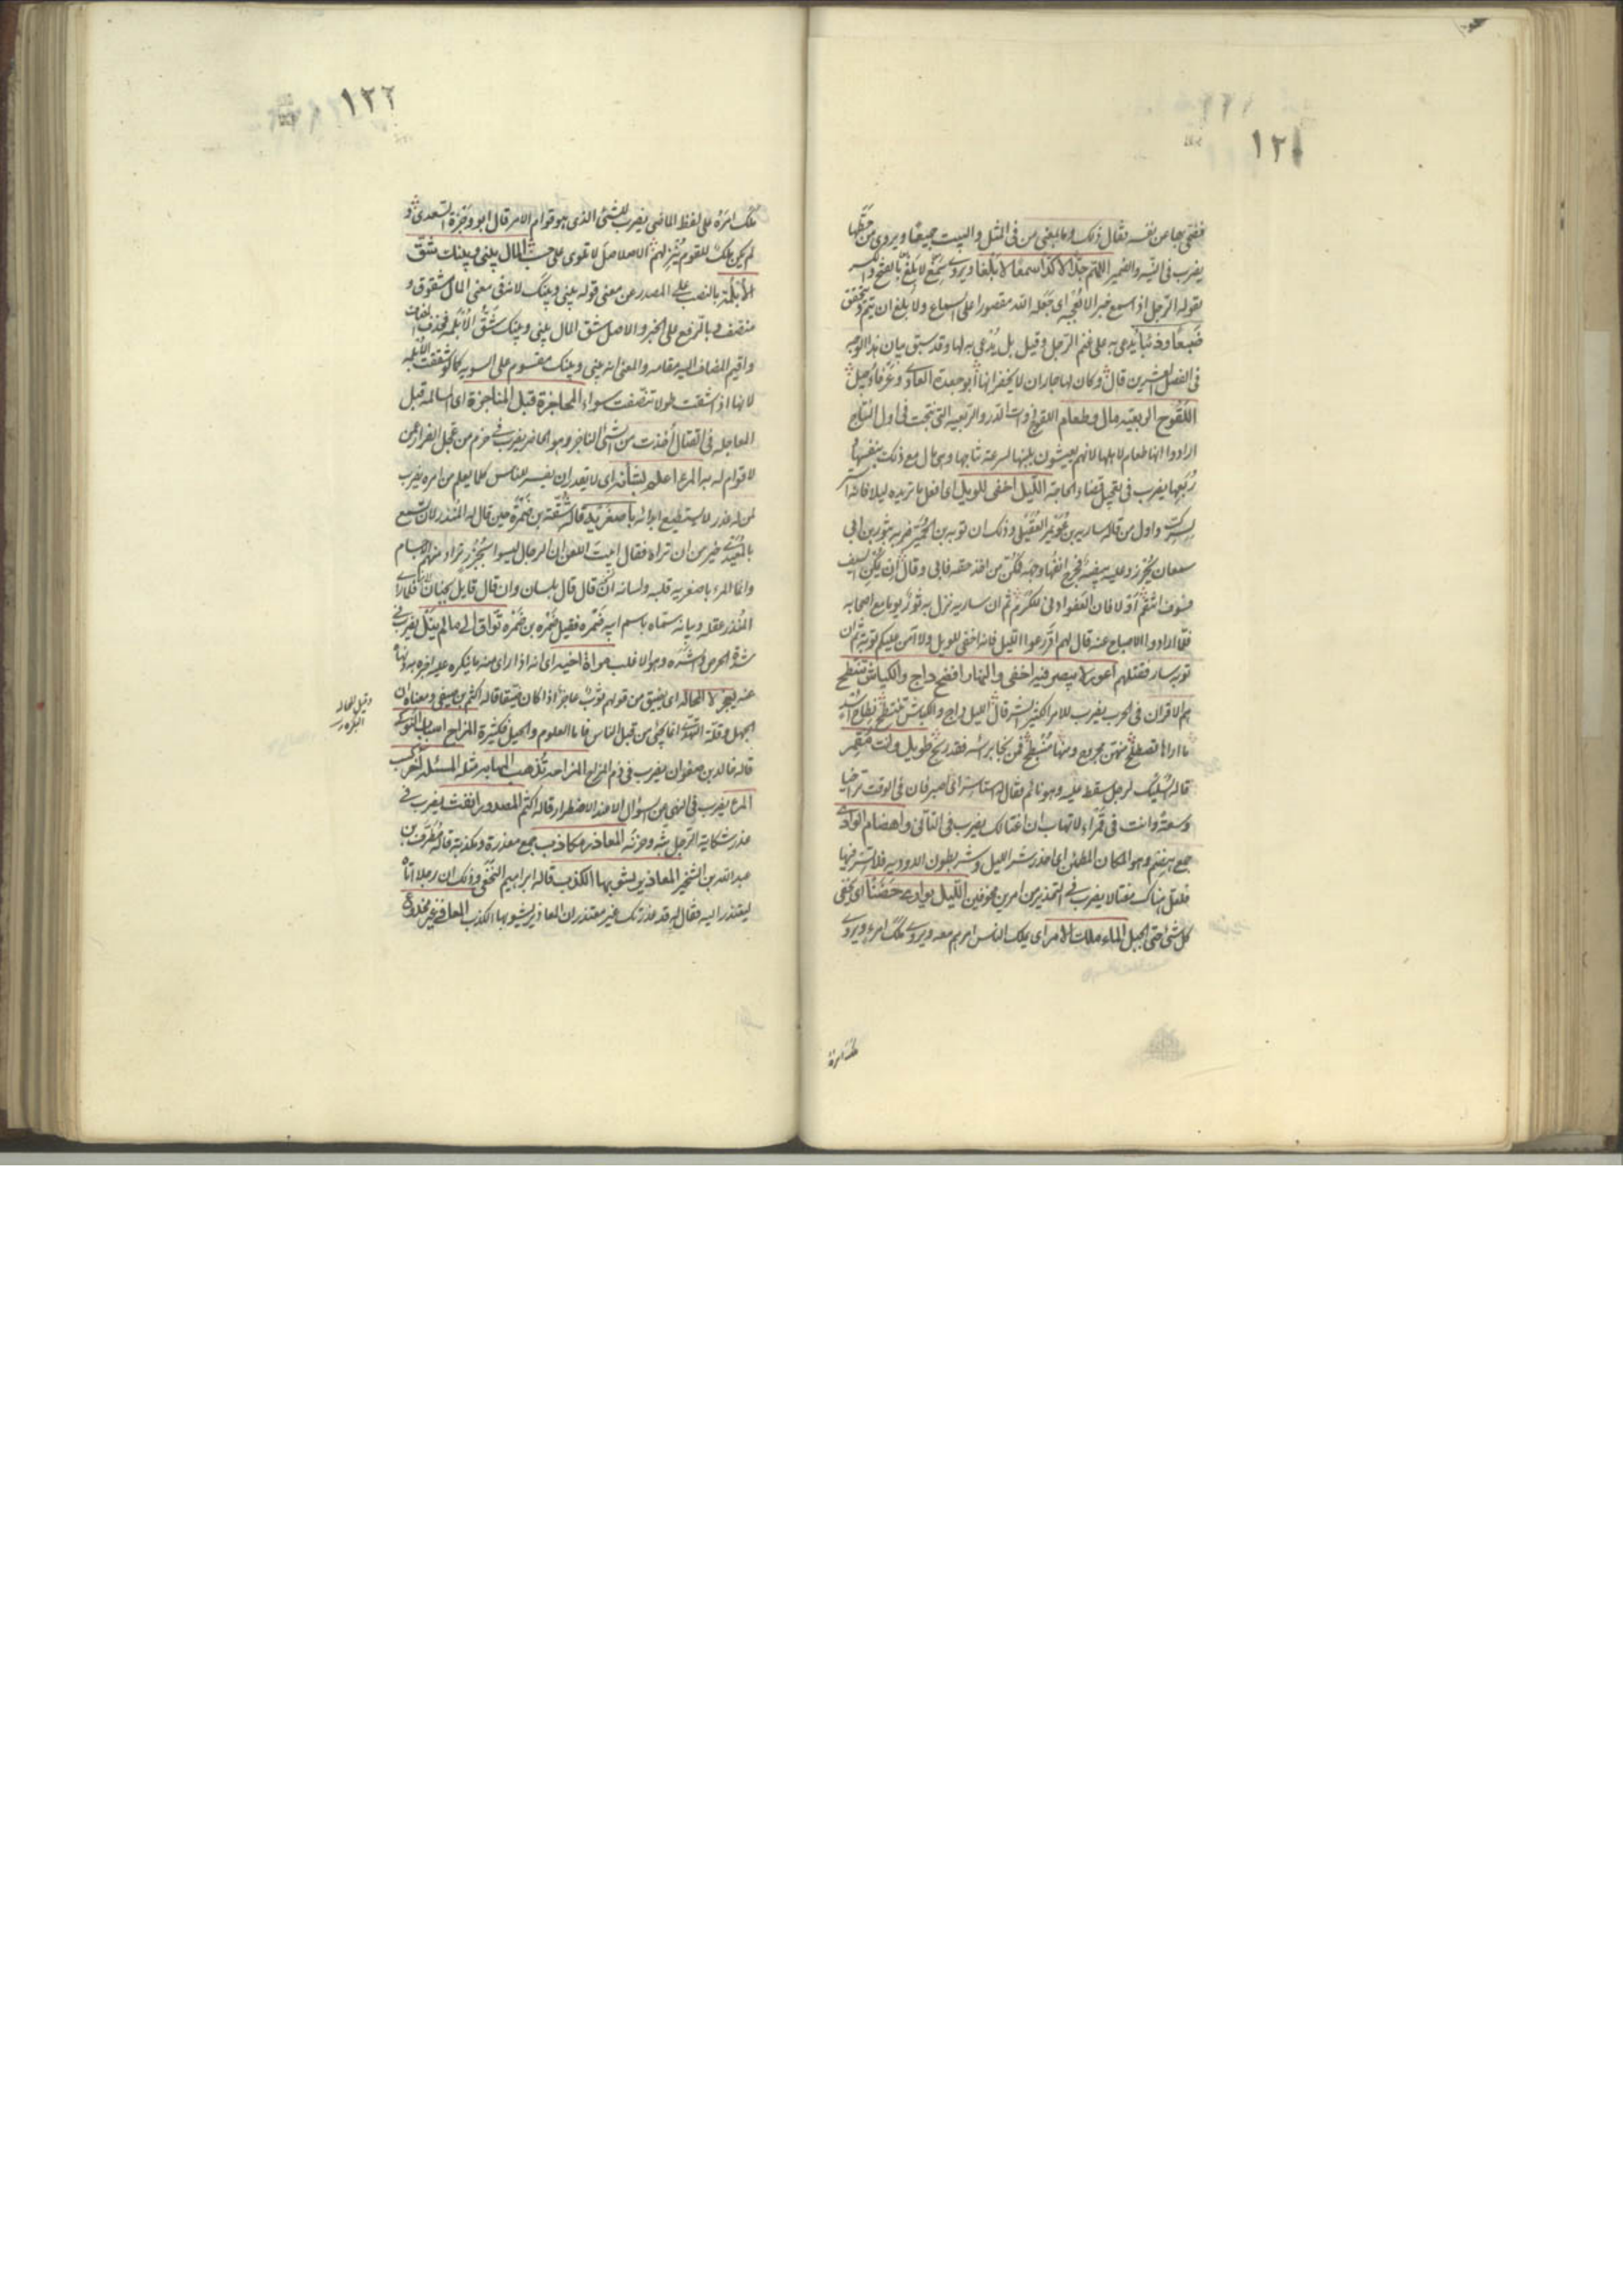 ١٢١
يضرب في النية والضمير اللهم
يقوله الرجل اذا سمع خبرا لا يعجبه اى جعله الله مقصورا على السماع ولا بلغ ان يتم ويتحقق
ضبعا وذئبا يدعى به على غنم الرجل وقيل بل يدعى به لها وقد سبق بيان هذا الوجه
في الفصل العشرين قال وكان لها جاران لا يخفرانها ابو جعدة العادى وعرفاء جيئل
اللقوح الربعيه مال وطعام اللقوح ذوات الدر والربعيه التى نتجت في اول النتاج
ارادوا انها طعام لاهلها لانهم يعيشون بلبنها لسرعة نتاجها وهى مال مع ذلك بنفسها
يضرب في تعجيل قضاء الحاجة الليل اخفى للويل اى افعل ما تريده ليلا فانه استر
لسرك واول من قاله ساريه بن عويمر العقيلى وذلك ان توبه بن الحمير ضربه ثور بن ابى
سمعان
فسوف انتقم اولا فان العفو ادنى للكرم ثم ان ساريه نزل به ثور يوما مع اصحابه
فلما ارادوا الاصباح عنه قال لهم ادرعوا الليل فانه اخفى للويل ولا آمن عليكم توبه ثم ان
توبه سار فقتلهم اعور لا يبصر فيه اخفى والنهار افضح داج والكباش تنتطح
هم الاقران في الحرب يضرب للامر الكثير الشر قال الليل داج والكباش تنتطح نطاح اسد
ما اراها تصطلح فمن نجا براسه فقد ربح طويل وانت مقمر
قاله سليك لرجل سقط عليه وهو نائم فقال له استاسر اى اصبر فان في الوقت تراخيا
وسعة وانت في قمراء لا تهاب ان اغتالك يضرب في التانى واهضام الوادى
جمع هضم وهو المكان المطمئن اى احذر شر الليل وشر بطون الاوديه فلا تسر فيها
فلعل هناك مغتالا يضرب في التحذير من امرين مخوفين الليل يوارى حضنا اى يخفى
كل شئ حتى الجبل الماء ملك الامر اى يملك الناس امرهم معه ويروى ملك امرء ويروى
ملك امره
١٢٢
ملك امره على لفظ الماضى يضرب للشئ الذى هو قوام الامر قال ابو وجزة السعدى و
لم يكن ملك للقوم ينزلهم الا صلاصل لا تلوى على حسب المال بينى وبينك شق
الابلمة بالنصب على المصدر من معنى قوله بينى وبينك لانه في معنى المال مشقوق و
منصف وبالرفع على الخبر والاصل شق المال بينى وبينك شق الابلمه فحذف المضاف
واقيم المضاف اليه مقامه والمعنى انه بينى وبينك مقسوم على السويه كما لو شققت الابلمه
لانها اذا شقت طولا تنصفت سواء المحاجزة قبل المناجزة اى المسالمة قبل
المعاجله في القتال اخذت من الشئ الناجز وهو الحاضر يضرب في حزم من عجل الفرار عمن
لا قوام له به المرء اعلم بشانه اى لا يقدر ان يفسر للناس كلما يعلم من امره يضرب
لمن له عذر لا يستطيع ابدائه باصغريه قاله شقه بن ضمرة حين قال له المنذر لان تسمع
بالمعيدى خير من ان تراه فقال ابيت اللعن ان الرجال ليسوا بجزر تراد منهم الاجسام
وانما المرء باصغريه قلبه ولسانه ان قال قال بلسان وان قاتل قاتل بجنان فلما راى
المنذر عقله وبيانه سماه باسم ابيه ضمره فقيل ضمره بن ضمره تواق الى ما لم ينل يضرب في
شدة الحرص والشره
عنه يعجز لا المحاله اى يضيق من قولهم ثوب عاجز اذا كان ضيقا قاله اكثم بن صيفى ومعناه ان
الجهل وقلة التهدى انما يجئ من قبل الناس فاما العلوم والحيل فكثيرة المزاح سباب النوكى
قاله خالد بن صفوان يضرب في ذم المزاح المزاحه تذهب المهابه مثله المسئله آخر كسب
المرء يضرب في النهى عن السؤال الا عند الاضطرار قاله اكثم المصدور انفث يضرب في
عذر شكاية الرجل بثه وحزنه المعاذر مكاذب جمع معذرة ومكذبة قاله مطرف بن
عبدالله بن الشخير المعاذير يشوبها الكذب قاله ابراهيم النخعى وذلك ان رجلا اتاه
ليعتذر اليه فقال له قد عذرتك غير معتذر ان المعاذير يشوبها الكذب المعافى غير مخدوع
وقيل المحاله
البكره